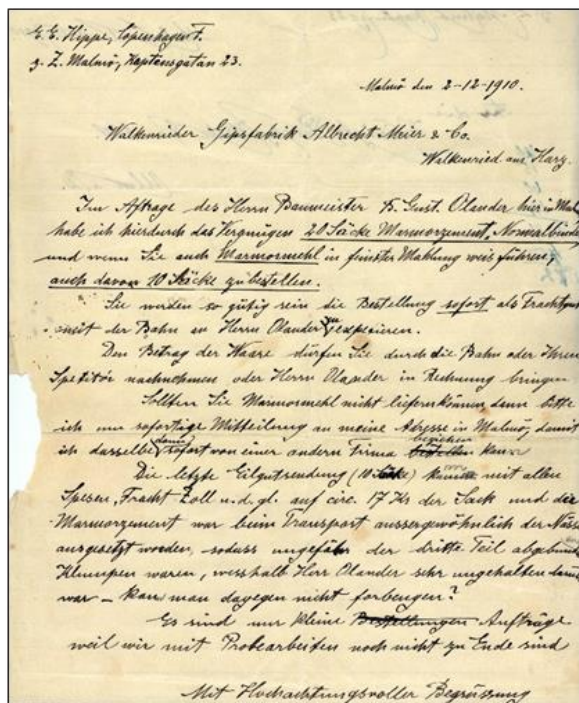 E. E. Hippe, Copenhagen F.
z. Z. Malmö, Kaptensgatan 23.
Malmö den 2-12-1910.
Walkenrieder Gipsfabrik Albrecht Meier & Co.
Walkenried am Harz.
Im Aftrage des Herrn Baumeister B. Gust. Olander hier in Mal
habe ich hierdurch das Vergnügen 20 Säcke Marmorzement, Normalbinde
und wenn Sie auch Marmormehl in feinster Mahlung weis führen,
auch davon 10 Säcke zu bestellen.
Sie werden so gütig sein die Bestellung sofort als Frachtgut
mit der Bahn an Herrn Olander zu expedieren.
Den Betrag der Waare dürfen Sie durch die Bahn oder Ihren
Speditör nachnehmen oder Herrn Olander in Rechnung bringen
Sollten Sie Marmormehl nicht liefern können dann bitte
ich um sofortige Mitteilung an meine Adresse in Malmö, damit
ich dasselbe dann sofort von einer andern Firma beziehen kann
Die letzte Eilgutsendung (10 Säcke) kam mit allen
Spesen, Fracht Zoll u. d. gl. auf circ. 17 Kr der Sack und die
Marmorzement war beim Transport aussergewöhnlich der Nässe
ausgesetzt worden, sodass ungefähr der dritte Teil abgebund
Klumpen waren, wesshalb Herr Olander sehr ungehalten
war – kan man dagegen nicht forbeugen?
Es sind nur kleine Bestellungen Aufträge
weil wir mit Probearbeiten noch nicht zu Ende sind
Mit Hochachtungsvoller Begrüssung